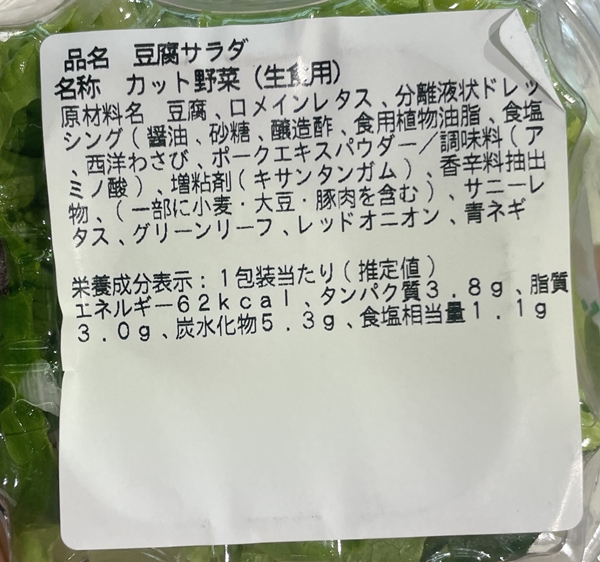 品名　豆腐サラダ
名称　カット野菜（生食用）
原材料名　豆腐、ロメインレタス、分離液状ドレッ
シング（醤油、砂糖、醸造酢、食用植物油脂、食塩
、西洋わさび、ポークエキスパウダー／調味料（ア
ミノ酸）、増粘剤（キサンタンガム）、香辛料抽出
物、（一部に小麦・大豆・豚肉を含む）、サニーレ
タス、グリーンリーフ、レッドオニオン、青ネギ
栄養成分表示：１包装当たり（推定値）
エネルギー６２ｋｃａｌ、タンパク質３．８ｇ、脂質
３．０ｇ、炭水化物５．３ｇ、食塩相当量１．１ｇ